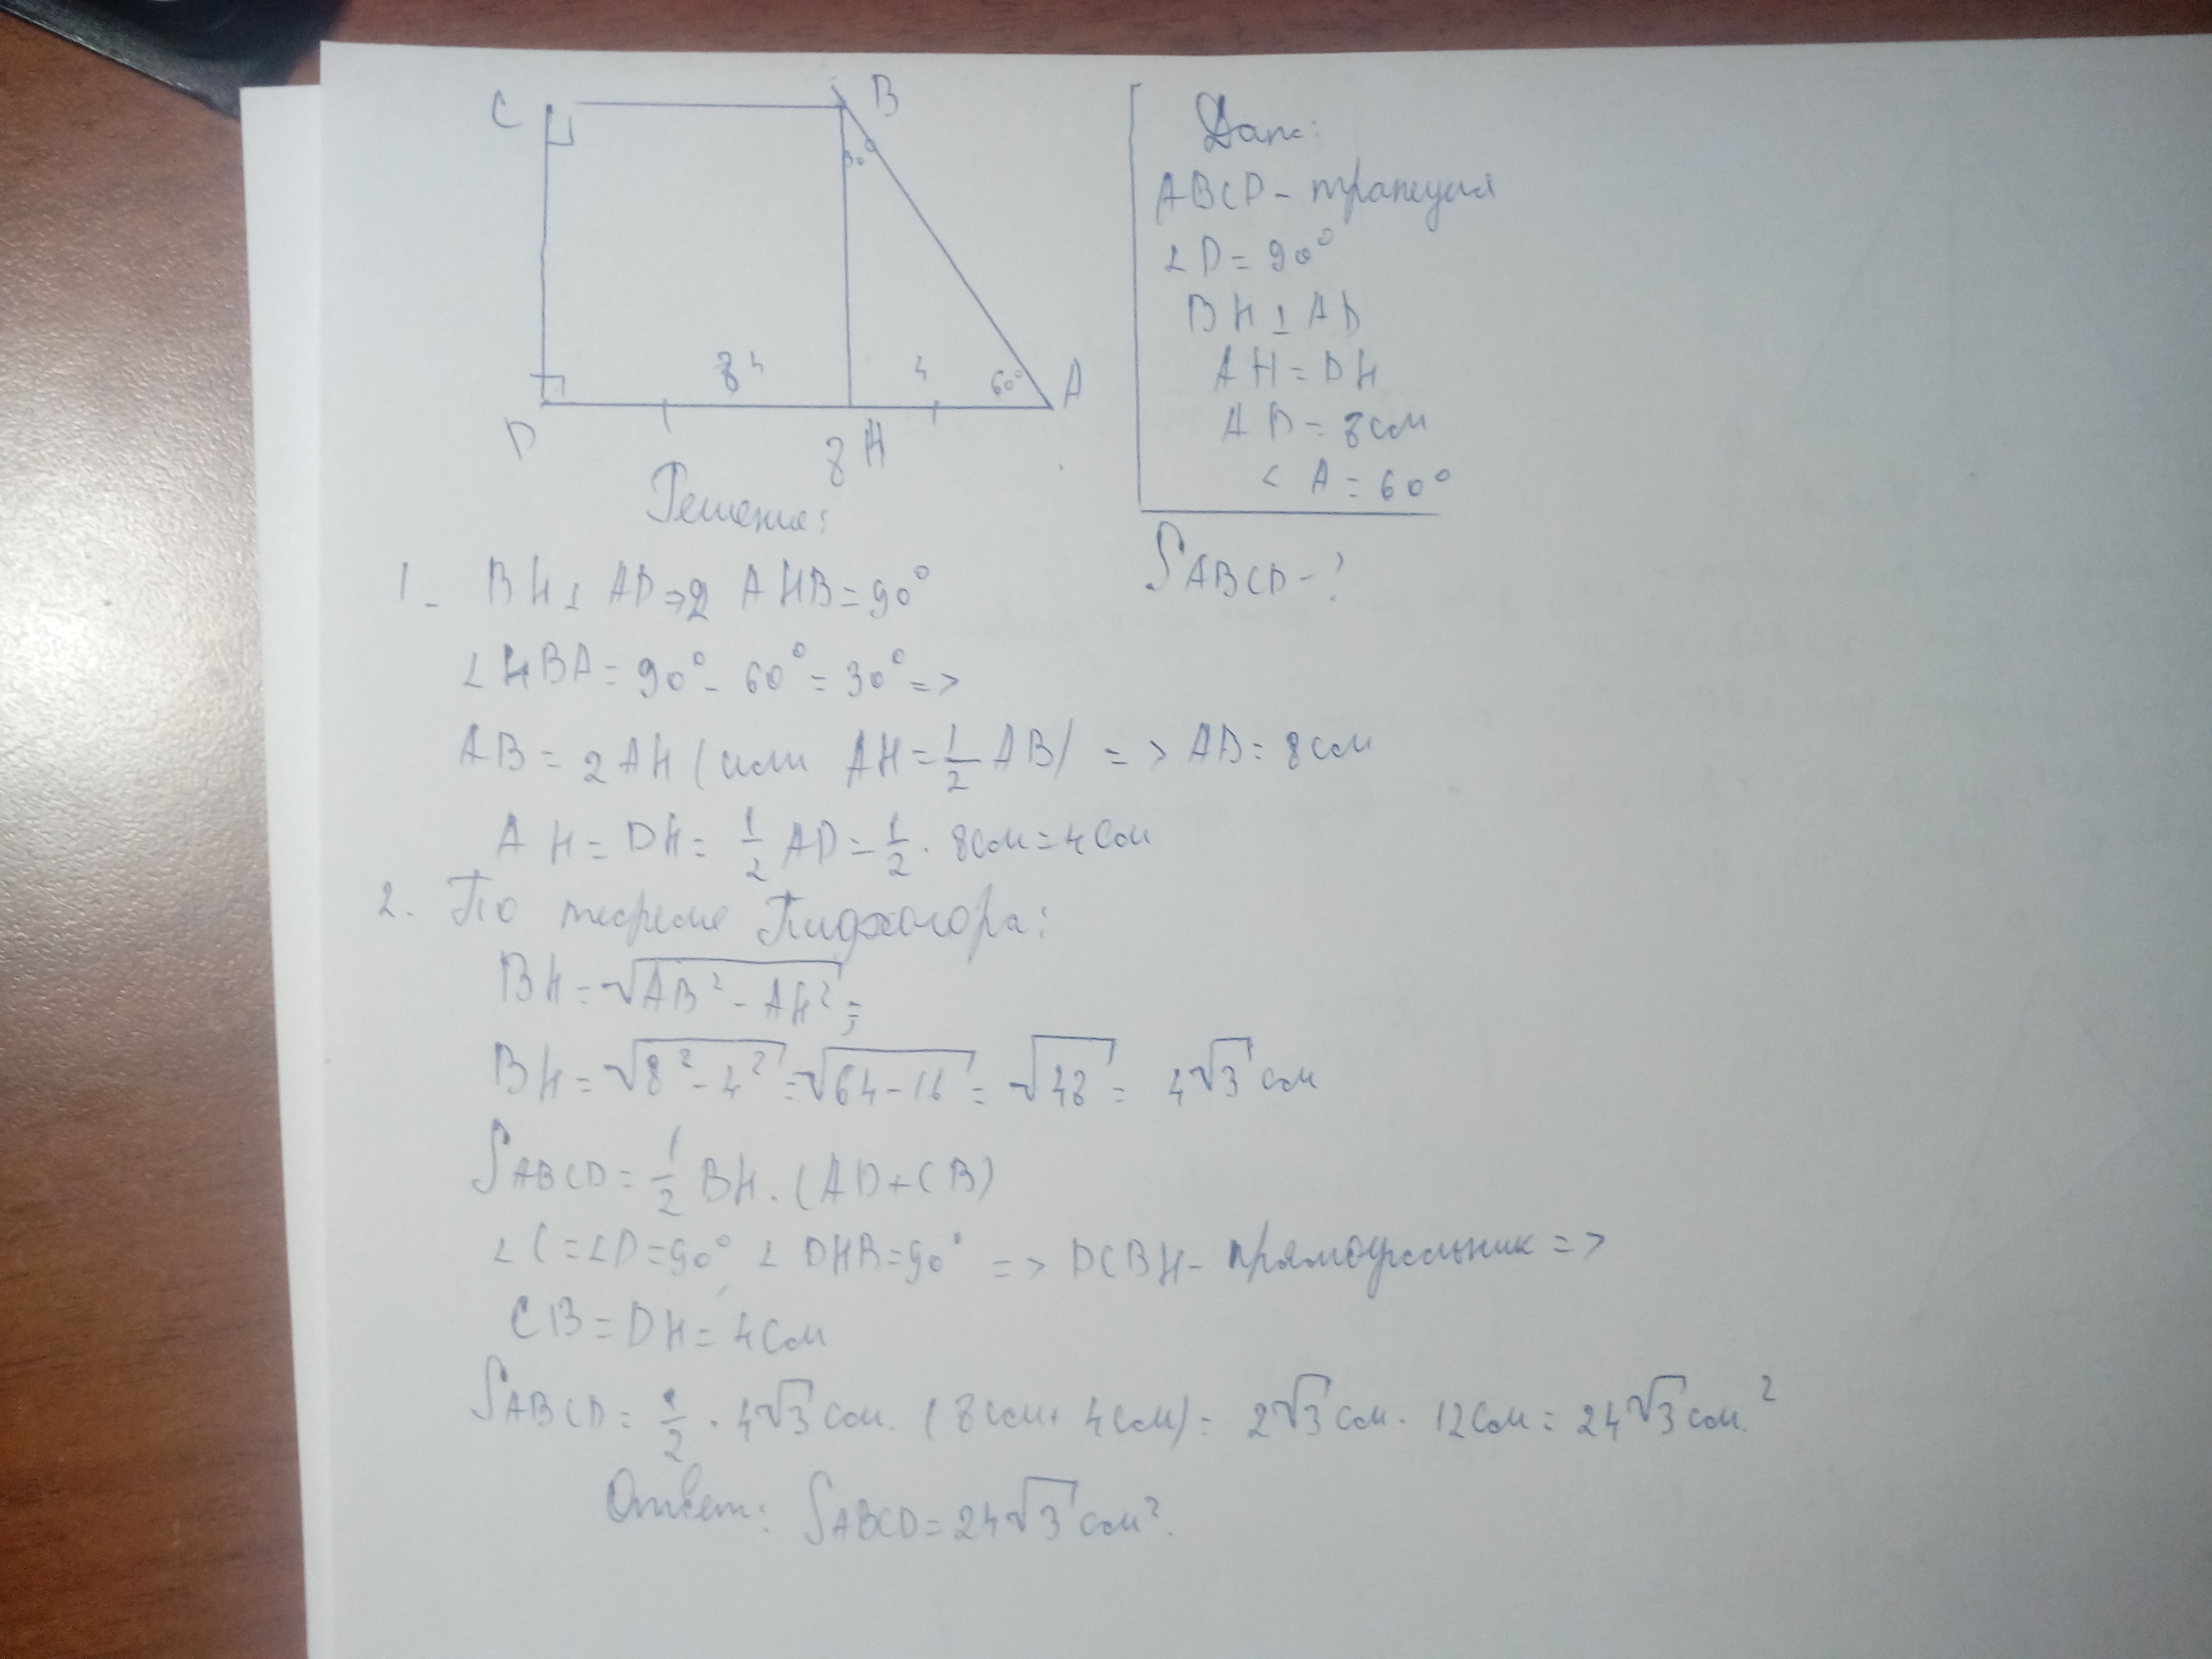 C B
30°
8 4 4 60° A
D 8 H
Дано:
ABCD - трапеция
∠D = 90°
BH ⊥ AD
AH = DH
AD = 8 см
< A = 60°
SABCD - ?
Решение:
1. BH ⊥ AD => ∠ AHB = 90°
∠HBA = 90° - 60° = 30° =>
AB = 2AH (или AH = 1/2 AB) => AB = 8 см
AH = DH = 1/2 AD = 1/2 · 8см = 4 см
2. По теореме Пифагора:
BH = √AB² - AH²;
BH = √8² - 4² = √64 - 16 = √48 = 4√3 см
SABCD = 1/2 BH · (AD + CB)
∠C = ∠D = 90°, ∠ DHB = 90° => DCBH - прямоугольник =>
CB = DH = 4 см
SABCD = 1/2 · 4√3 см · (8 см + 4 см) = 2√3 см · 12 см = 24√3 см²
Ответ: SABCD = 24√3 см².